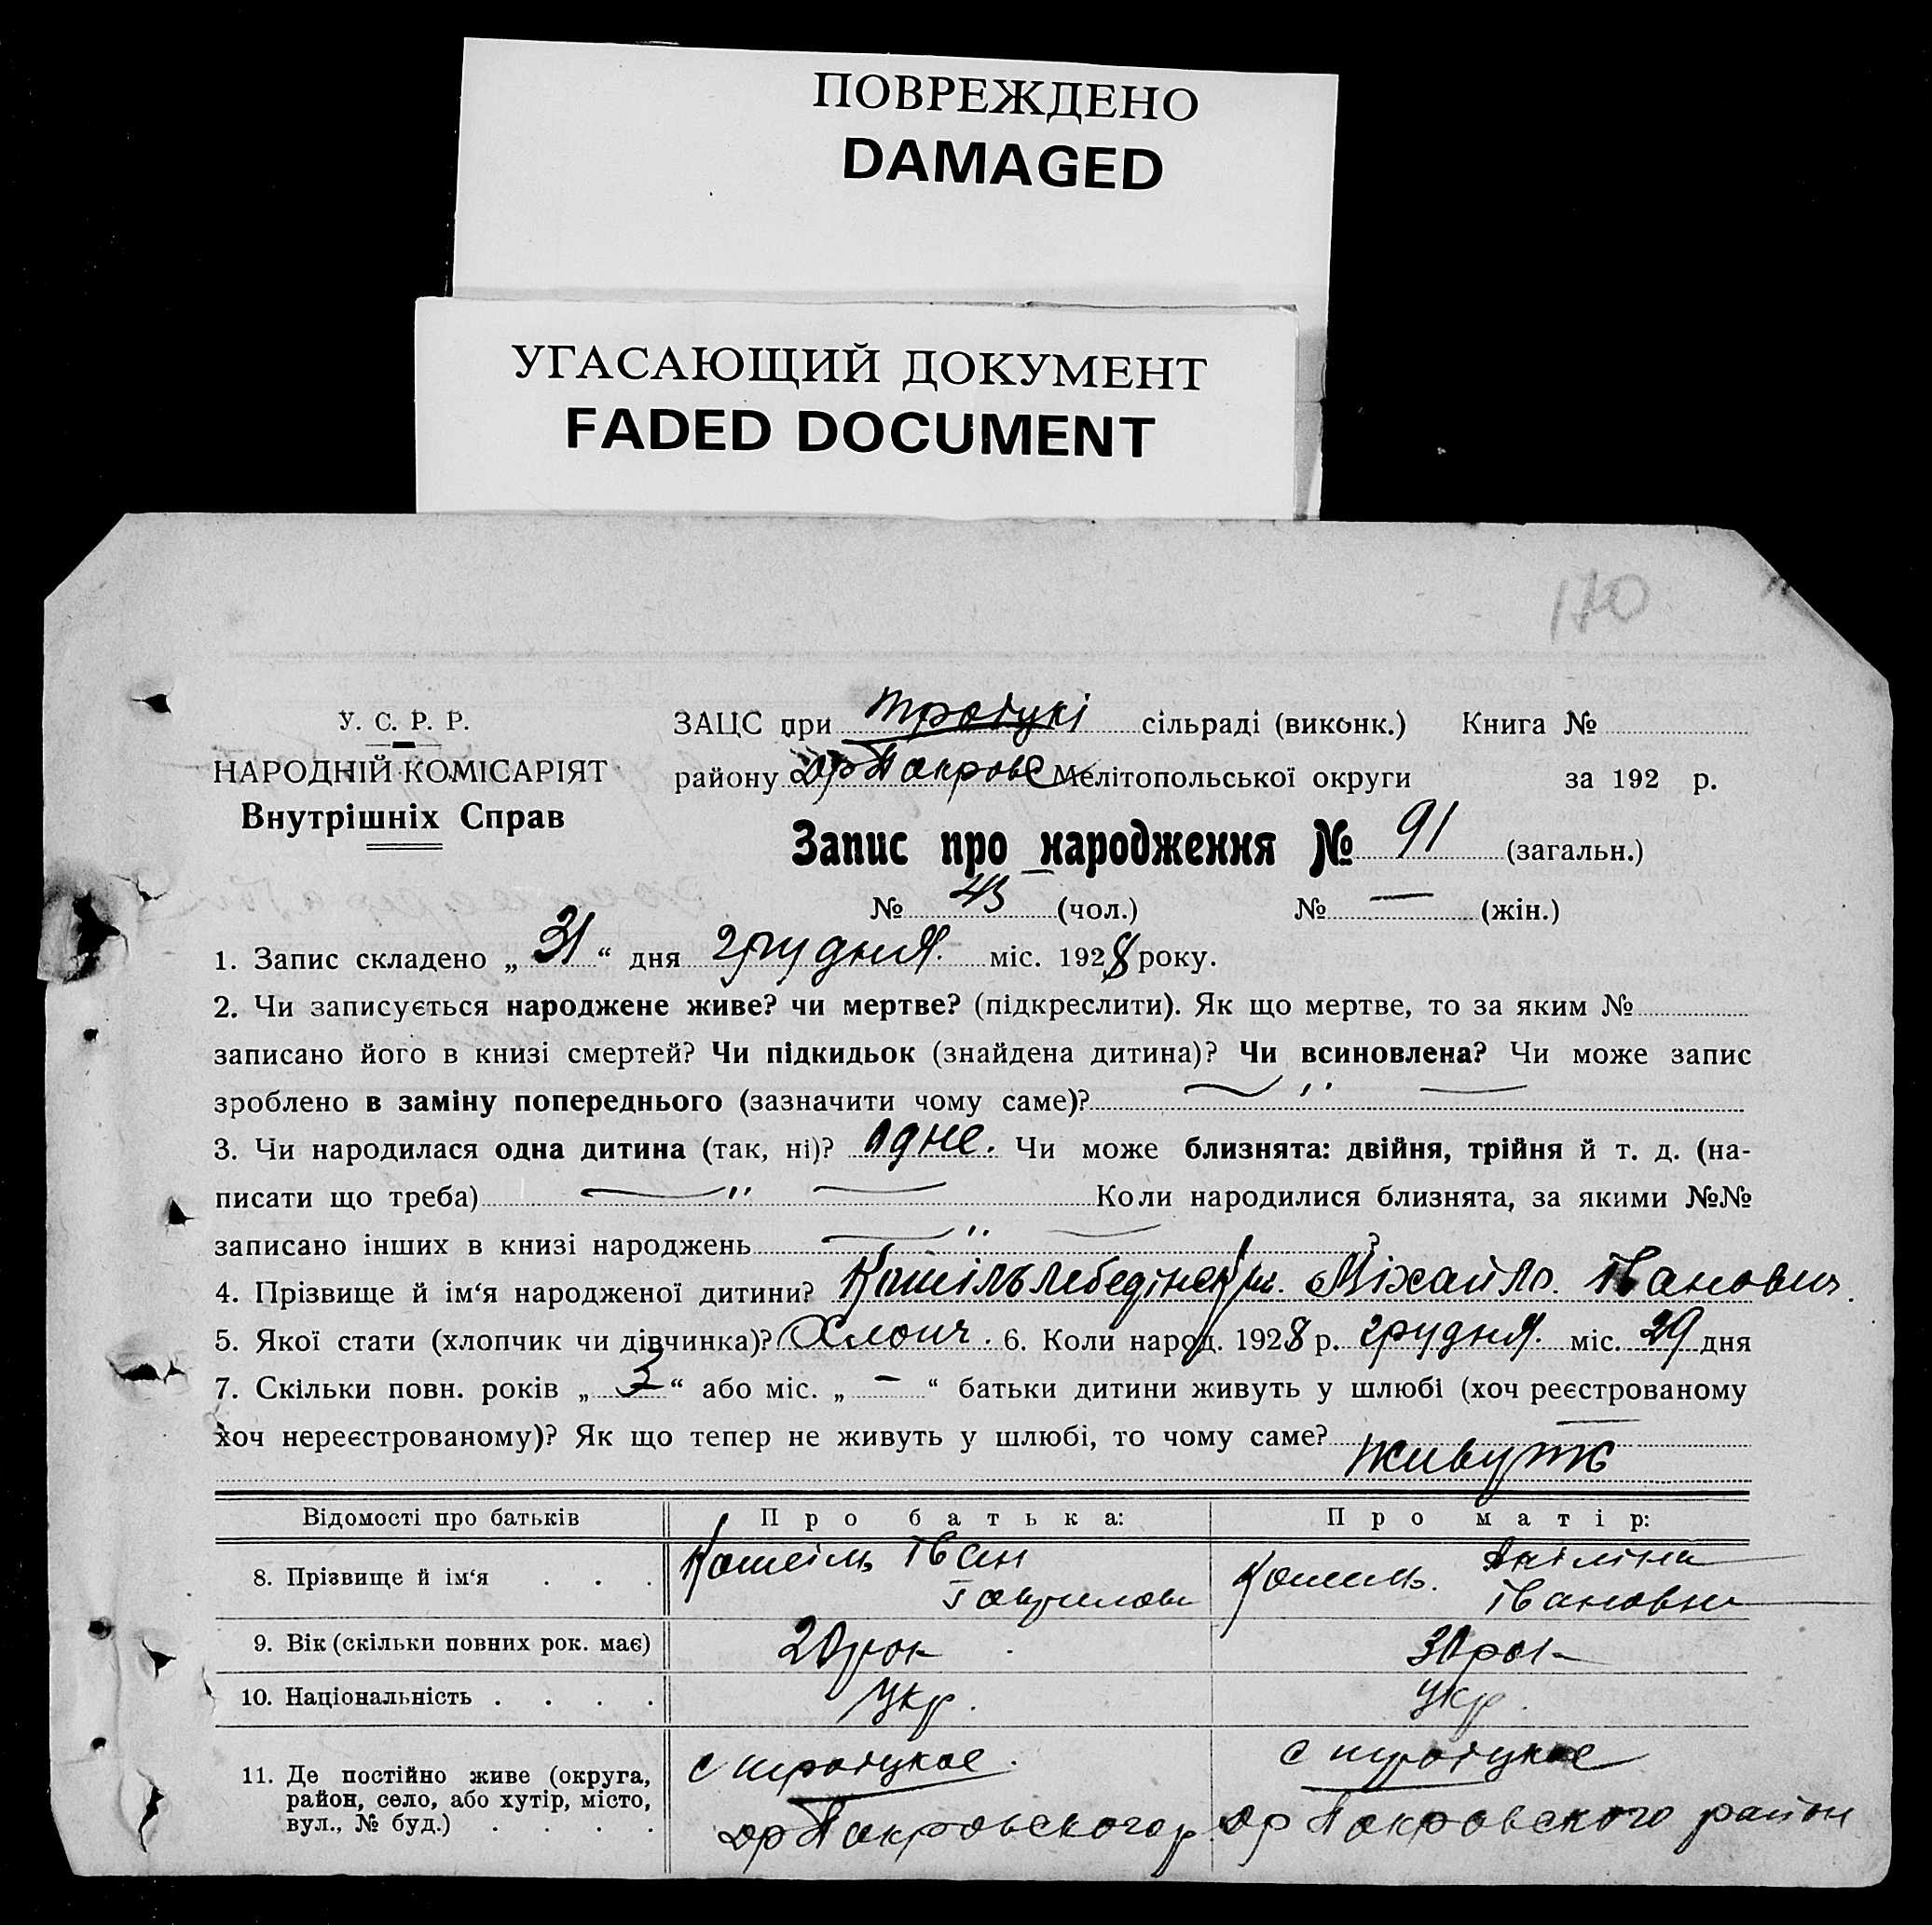 ПОВРЕЖДЕНО
DAMAGED
УГАСАЮЩИЙ ДОКУМЕНТ
FADED DOCUMENT
170
У. С. Р. Р.
НАРОДНІЙ КОМІСАРІЯТ
Внутрішніх Справ
ЗАЦС при Троіцкі сільраді (виконк.) Книга №
району Мелітопольської округи за 192 р.
Запис про народження № 91 (загальн.)
№ 43 (чол.) № — (жін.)
1. Запис складено „ 31 “ дня грудня. міс. 1928 року.
2. Чи записується народжене живе? чи мертве? (підкреслити). Як що мертве, то за яким №
записано його в книзі смертей? Чи підкидьок (знайдена дитина)? Чи всиновлена? Чи може запис
зроблено в заміну попереднього (зазначити чому саме)? — " —
3. Чи народилася одна дитина (так, ні)? одне. Чи може близнята: двійня, трійня й т. д. (на-
писати що треба) — " — Коли народилися близнята, за якими №№
записано інших в книзі народжень — " — ?
4. Прізвище й ім‘я народженої дитини? Міхайло. Іванович.
5. Якої стати (хлопчик чи дівчинка)? Хлопч. 6. Коли народ. 1928 р. грудня. міс. 29 дня
7. Скільки повн. років „ 3 “ або міс. „ — “ батьки дитини живуть у шлюбі (хоч реєстрованому
хоч нереєстрованому)? Як що тепер не живуть у шлюбі, то чому саме? —
живуть
Відомості про батьків Про батька: Про матір:
8. Прізвище й ім‘я . . . Кошіль Іван Гаврилов Кошиль. Івановна
9. Вік (скільки повних рок. має) рок 30 рок
10. Національність . . . . Укр. Укр.
11. Де постійно живе (округа, район, село, або хутір, місто, вул., № буд.) . . . .
с троіцкое. с троіцкое
Покровского р. Покровского район